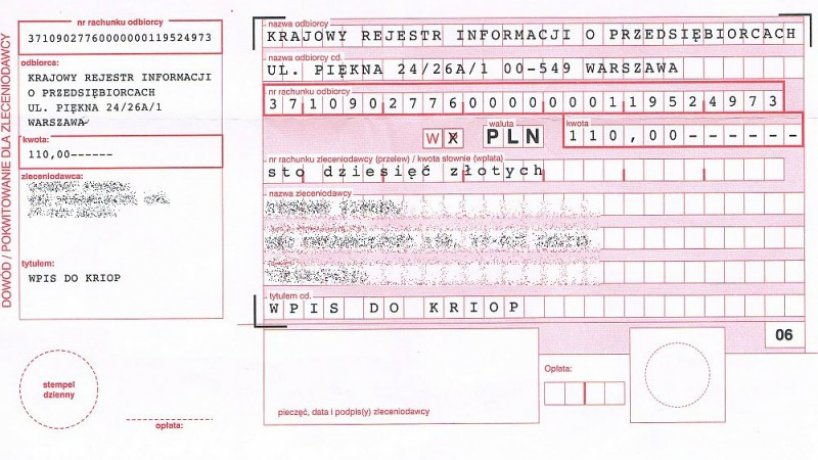 DOWÓD / POKWITOWANIE DLA ZLECENIODAWCY
nr rachunku odbiorcy
37109027760000000119524973
odbiorca:
KRAJOWY REJESTR INFORMACJI
O PRZEDSIĘBIORCACH
UL. PIĘKNA 24/26A/1
WARSZAWA
kwota:
110,00------
zleceniodawca:
tytułem:
WPIS DO KRIOP
stempel
dzienny
opłata:
nazwa odbiorcy
KRAJOWY REJESTR INFORMACJI O PRZEDSIĘBIORCACH
nazwa odbiorcy cd.
UL. PIĘKNA 24/26A/1 00-549 WARSZAWA
nr rachunku odbiorcy
37109027760000000119524973
W X
waluta
PLN
kwota
110,00------
nr rachunku zleceniodawcy (przelew) / kwota słownie (wpłata)
sto dziesięć złotych
nazwa zleceniodawcy
tytułem cd.
WPIS DO KRIOP
06
pieczęć, data i podpis(y) zleceniodawcy
Opłata: